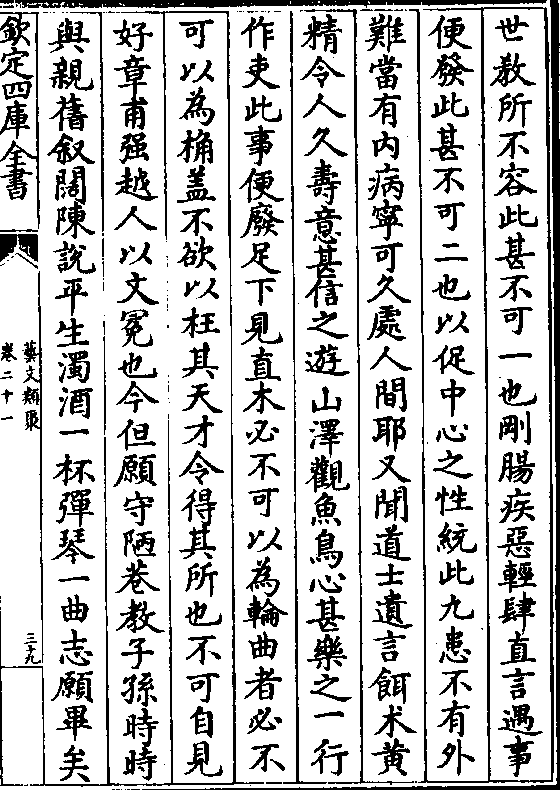 世教所不容此甚不可一也剛腸疾惡輕肆直言遇事
便發此甚不可二也以促中心之性統此九患不有外
難當有内病寧可久處人間耶又聞道士遺言餌术黄
精令人久壽意甚信之遊山澤觀魚鳥心甚樂之一行
作吏此事便廢足下見直木必不可以為輪曲者必不
可以為桷盖不欲以枉其天才令得其所也不可自見
好章甫强越人以文冕也今但願守陋巷教子孫時時
與親舊叙闊陳說平生濁酒一杯彈琴一曲志願畢矣
欽定四庫全書
藝文類聚
卷二十一
三十九